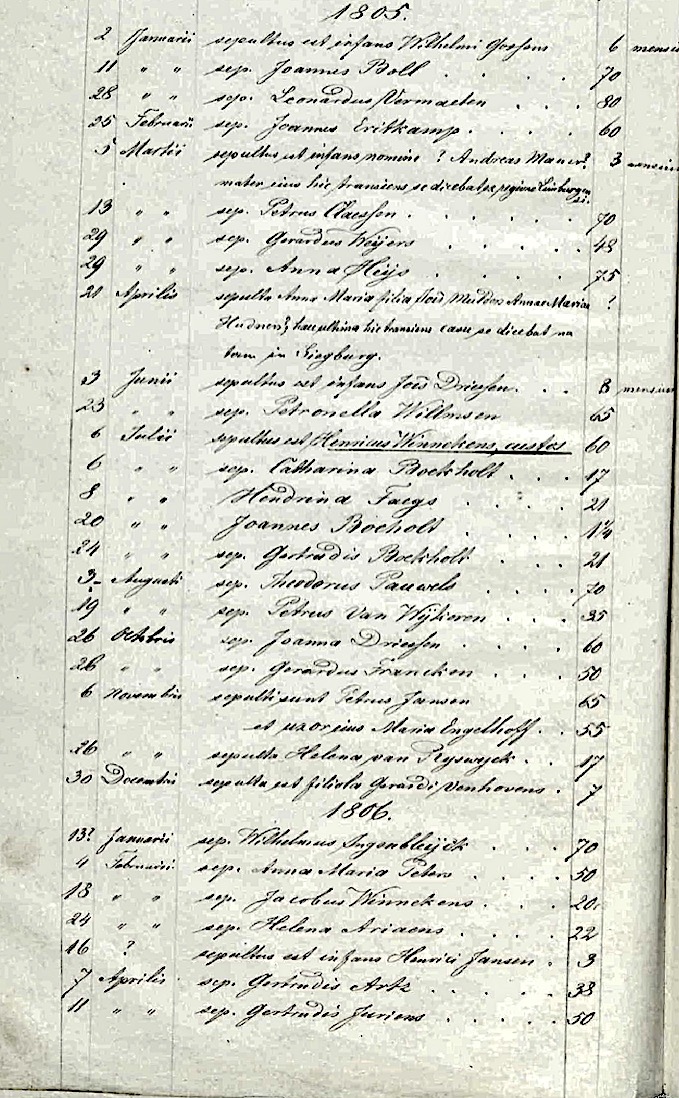 1805.
2 Januarii sepultus est infans Wilhelmi Gossens 6 mensiu
11 " " sep. Joannes Boll . . . . . 70
28 " " sep. Leonardus Vermaeten . . . 80
25 Februarii sep. Joannes Eritkamp . . . . 60
5 Martii sepultus est infans nomine ? Andreas Maner? 3 mensiu
mater eius hic transiens se dicebat ex regione Limburgen
si.
13 " " sep. Petrus Claessen . . . . . 70
29 " " sep. Gerardus Weijers . . . . 48
29 " " sep. Anna Heijs . . . . . 75
21 Aprilis sepulta Anna Maria filia Mulders Annae Maria ?
hic transiens casu se dicebat na
tam in Siegburg.
3 Junii sepultus est infans Jois Driessen . . . 8 mensiu
23 " " sep. Petronella Willmsen 65
6 Julii sepultus est Henricus Winnekens, custos 60
6 " " sep. Catharina Boekholt . . . 17
8 " " Hendrina Faegs . . . . . 21
20 " " Joannes Bocholt . . . . . 1¼
24 " " sep. Gertrudis Boekholt . . . 21
3 Augusti sep. Theodorus Pauwels . . . . 70
19 " " sep. Petrus van Wijkeren . . . 35
26 Octobris sep. Joanna Driessen . . . . 60
26 " " sep. Gerardus Francken . . . 50
6 Novembris sepulti sunt Petrus Jansen 65
et uxor eius Maria Engelhoff . . 55
26 " " sepulta Helena van Ryswyck . . . 17
30 Decembris sepulta est filiola Gerardi Venhovens . 7
1806.
13? Januarii sep. Wilhelmus Ingenbleijck . . . 70
4 Februarii sep. Anna Maria Peters . . . . 50
18 " " sep. Jacobus Winnekens . . . 20
24 " " sep. Helena Ariaens . . . . 22
16 ? sepultus est infans Henrici Jansen . 3
7 Aprilis sep. Gertrudis Artz . . . . . 38
11 " " sep. Gertrudis Juriens . . . . 50